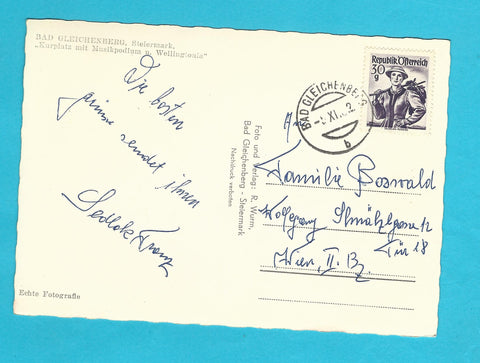 BAD GLEICHENBERG, Steiermark,
„Kurplatz mit Musikpodium u. Wellingtonia"
Die besten
grüsse sendet ihnen
Sedlak Franz
Echte Fotografie
Foto und Verlag: R. Wurm,
Bad Gleichenberg - Steiermark
Nachdruck verboten
Republik Österreich
30 g
BAD GLEICHENBERG
XI.
b
An
Familie Boswald
Wolfgang Schmälzlgasse 12
Tür 18
Wien, II. Bz.